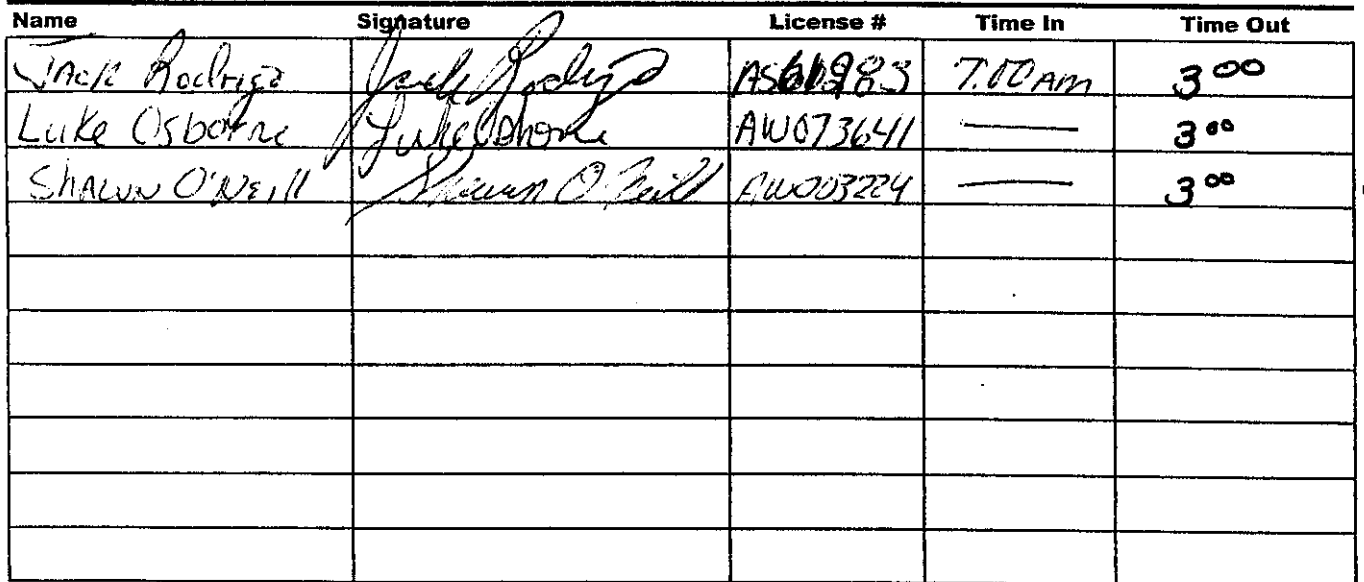 Name Signature License # Time In Time Out
Jack Rodrigo Jack Rodrigo 7:00 AM 3 00
Luke Osborne Luke Osborne AW073641 — 3 00
Shawn O'Neill Shawn O'Neill AW003224 — 3 00